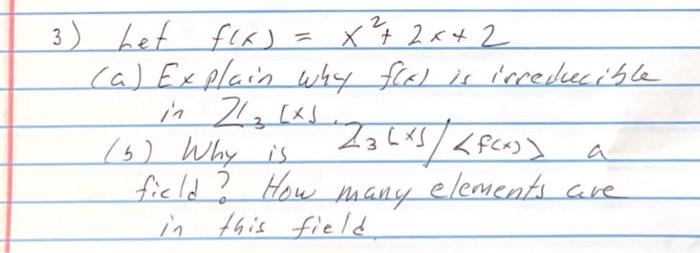 3) Let f(x) = x² + 2x + 2
(a) Explain why f(x) is irreducible
in ℤ₃[x].
(b) Why is ℤ₃[x]/<f(x)> a
field? How many elements are
in this field